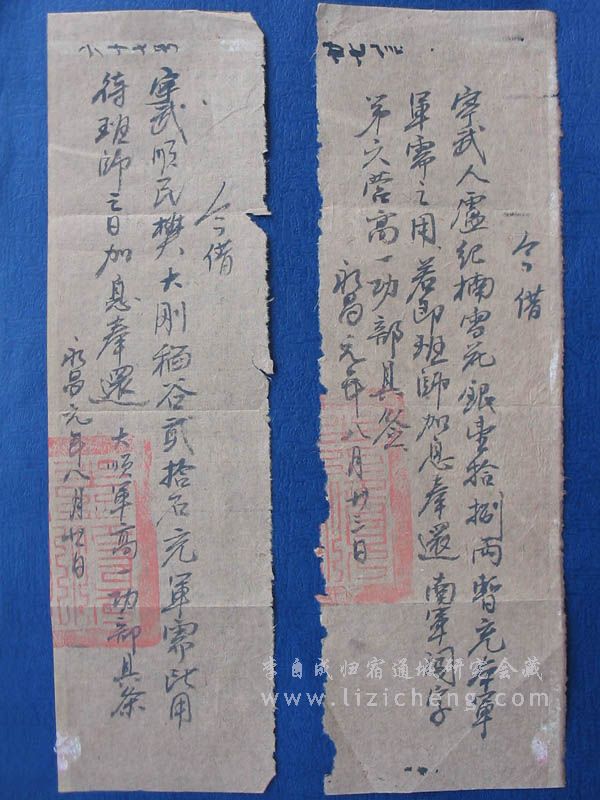 今借
寧武人盧纪楠雪花銀壹拾捌両暫充本軍
軍需之用若即班師加息奉還南軍閣字
第六营高一功部具签
永昌元年八月廿三日
今借
寧武順民樊大刚稻谷貳拾石充軍需此用
待班師之日加息奉還 大順軍高一功部具条
永昌元年八月廿日
李自成归宿通城研究会藏
www.lizicheng.com